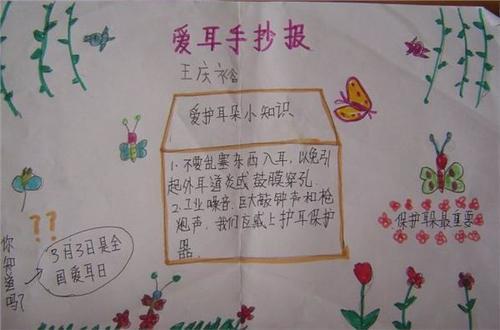 爱耳手抄报
王庆裕
爱护耳朵小知识
1.不要乱塞东西入耳,以免引
起外耳道炎或鼓膜穿孔.
2.工业噪音.巨大鼓钟声和枪
炮声.我们应戴上护耳保护
器.
保护耳朵最重要
??
你知道吗?
3月3日是全
国爱耳日